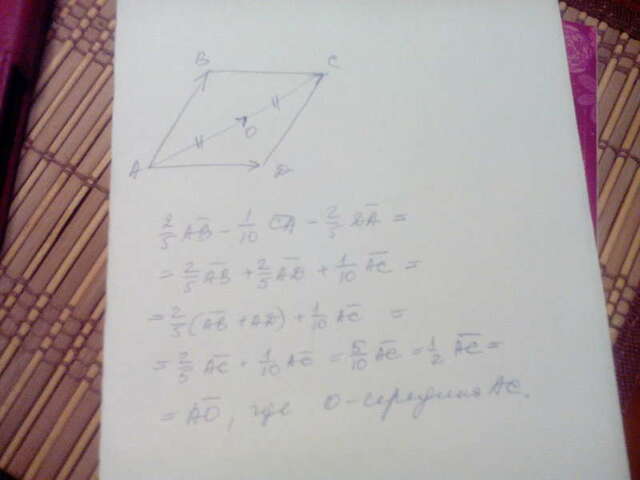 B C
O
A D
2/5 A̅B̅ - 1/10 C̅A̅ - 2/5 D̅A̅ =
= 2/5 A̅B̅ + 2/5 A̅D̅ + 1/10 A̅C̅ =
= 2/5 (A̅B̅ + AD) + 1/10 A̅C̅ =
= 2/5 A̅C̅ + 1/10 A̅C̅ = 5/10 A̅C̅ = 1/2 A̅C̅ =
= A̅O̅, где O - середина AC.